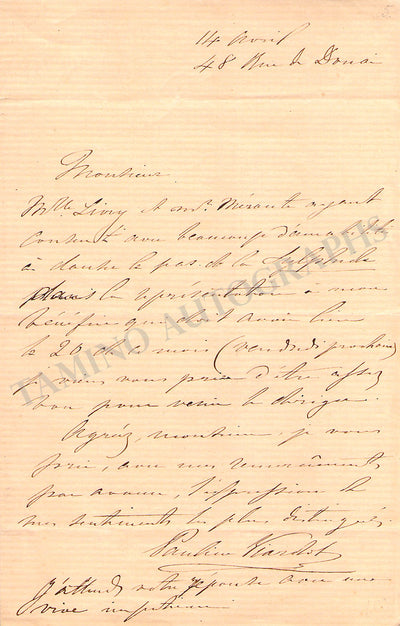 14 avril
48 Rue de Douai
Monsieur
Mlle Livry et Mr. Mérante ayant
consenti avec beaucoup d'amabilité
à danser le pas de la Sylphide
dans la représentation à mon
bénéfice qui doit avoir lieu
le 20 de ce mois (vendredi prochain)
je viens vous prier d'être assez
bon pour venir le diriger.
Agréez, monsieur, je vous
prie, avec mes remerciements
par avance, l'expression de
mes sentiments les plus distingués.
Pauline Viardot
J'attends votre réponse avec une
vive impatience
TAMINO AUTOGRAPHS